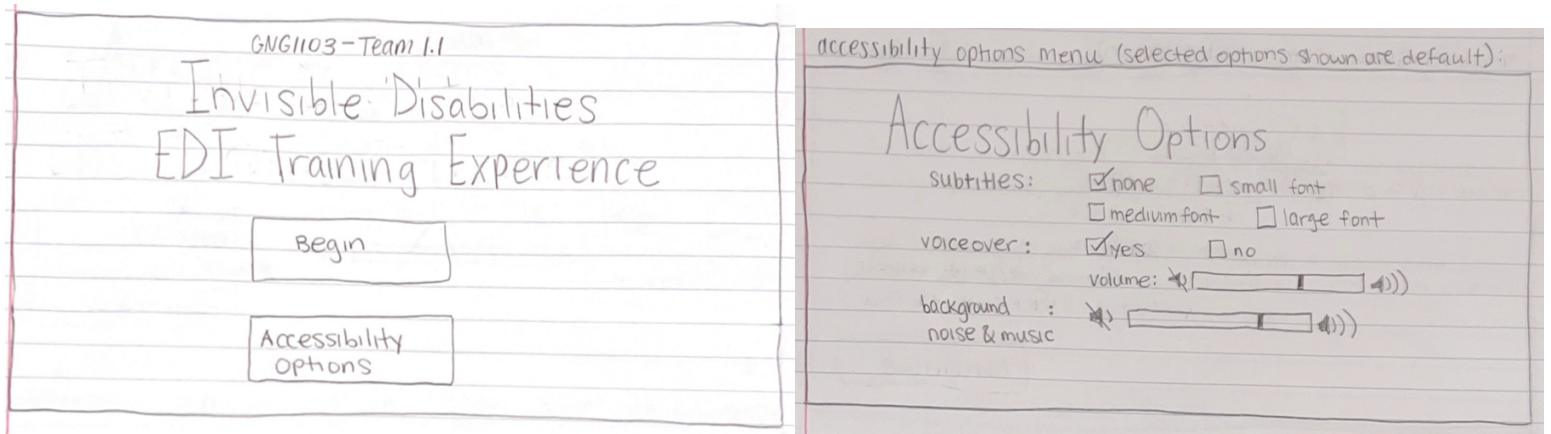 GNG1103 - Team 1.1
Invisible Disabilities
EDI Training Experience
Begin
Accessibility
options
accessibility options menu (selected options shown are default):
Accessibility Options
subtitles: none small font
medium font large font
voiceover: yes no
volume:
background :
noise & music